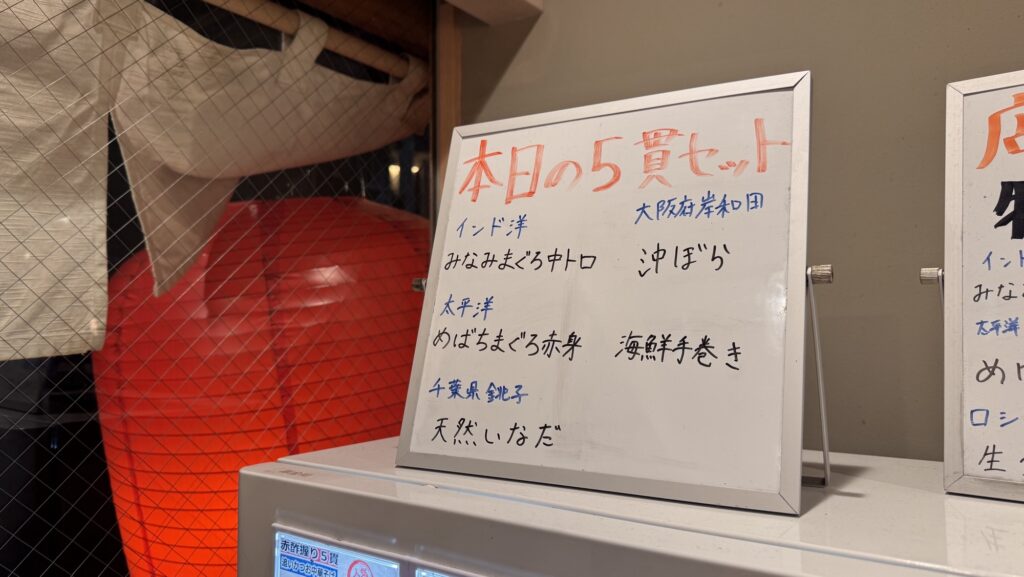 本日の5貫セット
インド洋
みなみまぐろ中トロ
太平洋
めばちまぐろ赤身
千葉県銚子
天然いなだ
大阪府岸和田
沖ぼら
海鮮手巻き
店
インド
みなみ
太平洋
め
ロシ
生
赤酢握り5貫